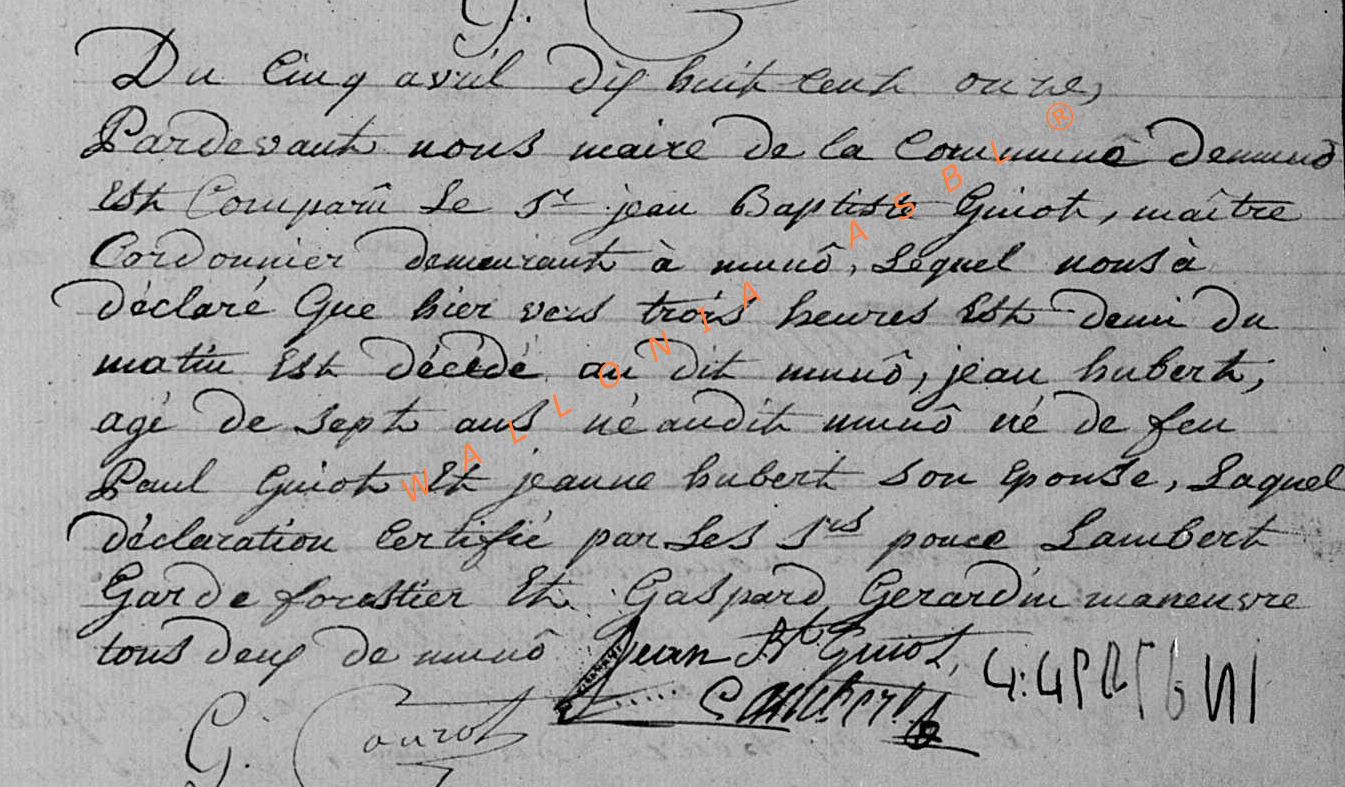 G.
Du Cinq avril dix huit cent onze,
Pardevant nous maire de la Commune demunô
Est Comparû Le Sr jean Baptiste Guiot, maître
Cordonnier demeurant à munô, Lequel nous à
déclaré Que hier vers trois heures Est demi du
matin Est décédé au dit munô, jean hubert,
agé de sept ans né audit munô né de feu
Paul Guiot Et jeanne hubert son Epouse, Laquel
déclaration Certifié par Les Srs ponce Lambert
Garde forestier Et Gaspard Gerardin maneuvre
tous deux de munô Jean Bt Guiot
Lambert
G. Courot
WALLONIA ASBL ®